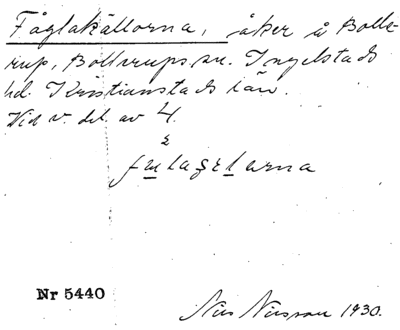 Fåglakällorna, åker å Bolle-
rup, Bollerups sn. Ingelstads
hd. Kristianstads län.
Vid v. del. av 4.
Nr 5440
Nils Nilsson 1930.